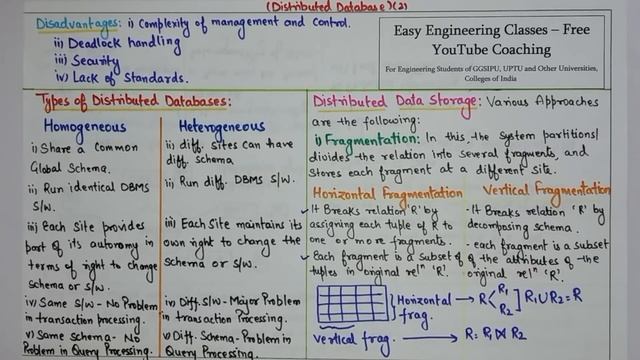 (Distributed Database)(2)
Disadvantages: i) Complexity of management and control.
ii) Deadlock handling
iii) Security
iv) Lack of Standards.
Easy Engineering Classes – Free
YouTube Coaching
For Engineering Students of GGSIPU, UPTU and Other Universities,
Colleges of India
Types of Distributed Databases:
Homogeneous
i) Share a Common
Global Schema.
ii) Run identical DBMS
S/W.
iii) Each Site provides
part of its autonomy in
terms of right to change
schema or S/W.
iv) Same S/W - No Problem
in transaction processing.
v) Same schema - No
Problem in Query Processing.
Heterogeneous
i) diff. sites can have
diff. Schema
ii) Run diff. DBMS S/W.
iii) Each Site maintains its
own right to change the
Schema or S/W.
iv) Diff. S/W - Major Problem
in transaction Processing.
v) Diff. Schema - Problem in
Query Processing.
Distributed Data Storage: Various Approaches
are the following:
i) Fragmentation: In this, the System partitions/
divides the relation into several fragments, and
Stores each fragment at a different site.
Horizontal Fragmentation
- It Breaks relation 'R' by
assigning each tuple of R to
one or more fragments.
Each fragment is a Subset of
tuples in original relⁿ 'R'.
Vertical Fragmentation
- It Breaks relation 'R' by
decomposing schema.
- each fragment is a subset
of the attributes of the
original relⁿ 'R'.
Horizontal → R < R1 R2 ] R1 U R2 = R
frag.
Vertical frag. → R = R1 ⋈ R2